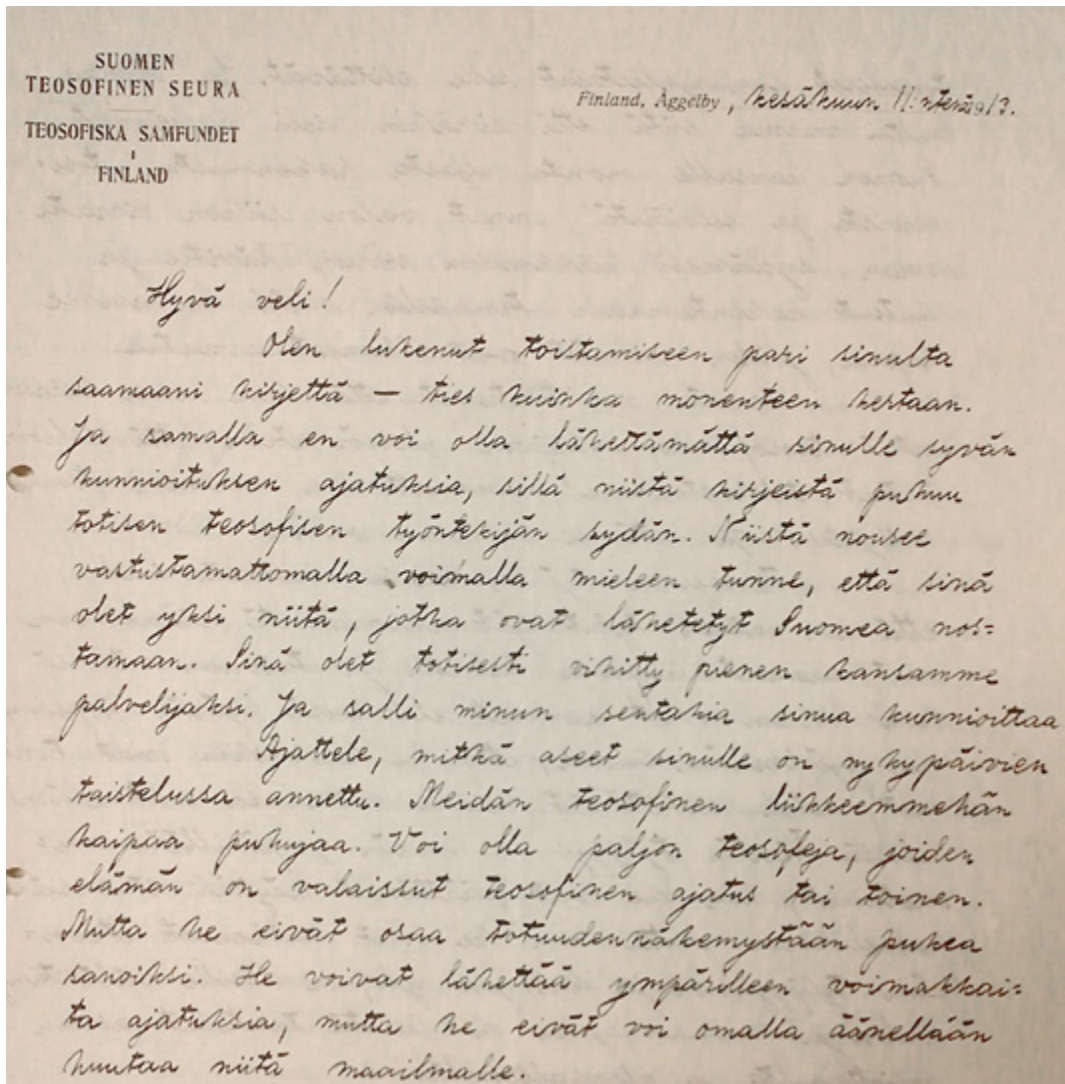 SUOMEN
TEOSOFINEN SEURA
TEOSOFISKA SAMFUNDET
I
FINLAND
Finland, Åggelby, kesäkuun 11:ntenä 1913.
Hyvä veli!
Olen lukenut toistamiseen pari sinulta
saamaani kirjettä — ties kuinka monenteen kertaan.
Ja samalla en voi olla lähettämättä sinulle syvän
kunnioituksen ajatuksia, sillä niistä kirjeistä puhuu
totisen teosofisen työntekijän sydän. Niistä nousee
vastustamattomalla voimalla mieleen tunne, että sinä
olet yksi niitä, jotka ovat lähetetyt Suomea nos=
tamaan. Sinä olet totisesti vihitty pienen kansamme
palvelijaksi. Ja salli minun sentähia sinua kunnioittaa
Ajattele, mitkä aseet sinulle on nykypäivien
taistelussa annettu. Meidän teosofinen liikkeemmehän
kaipaa puhujaa. Voi olla paljon teosofeja, joiden
elämän on valaissut teosofinen ajatus tai toinen.
Mutta he eivät osaa totuudennäkemystään pukea
sanoiksi. He voivat lähettää ympärilleen voimakkai=
ta ajatuksia, mutta he eivät voi omalla äänellään
huutaa niitä maailmalle.